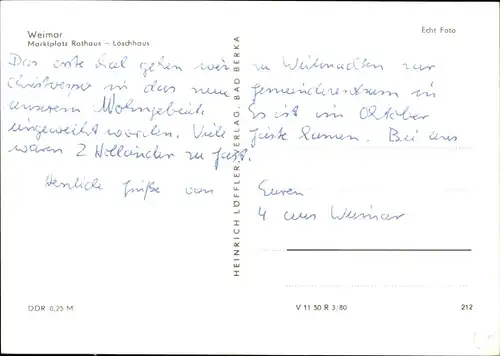 Weimar
Marktplatz Rathaus - Löschhaus
Echt Foto
Das erste Mal gehen wir zu Weihnachten zur
Christvesper in das neue Gemeindezentrum in
unserem Wohngebiet. Es ist im Oktober
eingeweiht worden. Viele Gäste kamen. Bei uns
waren 2 Holländer zu Gast.
Herzliche Grüße von Euren
4 aus Weimar
HEINRICH LÖFFLER VERLAG, BAD BERKA
DDR 0,25 M
V 11 50 R 3/80
212